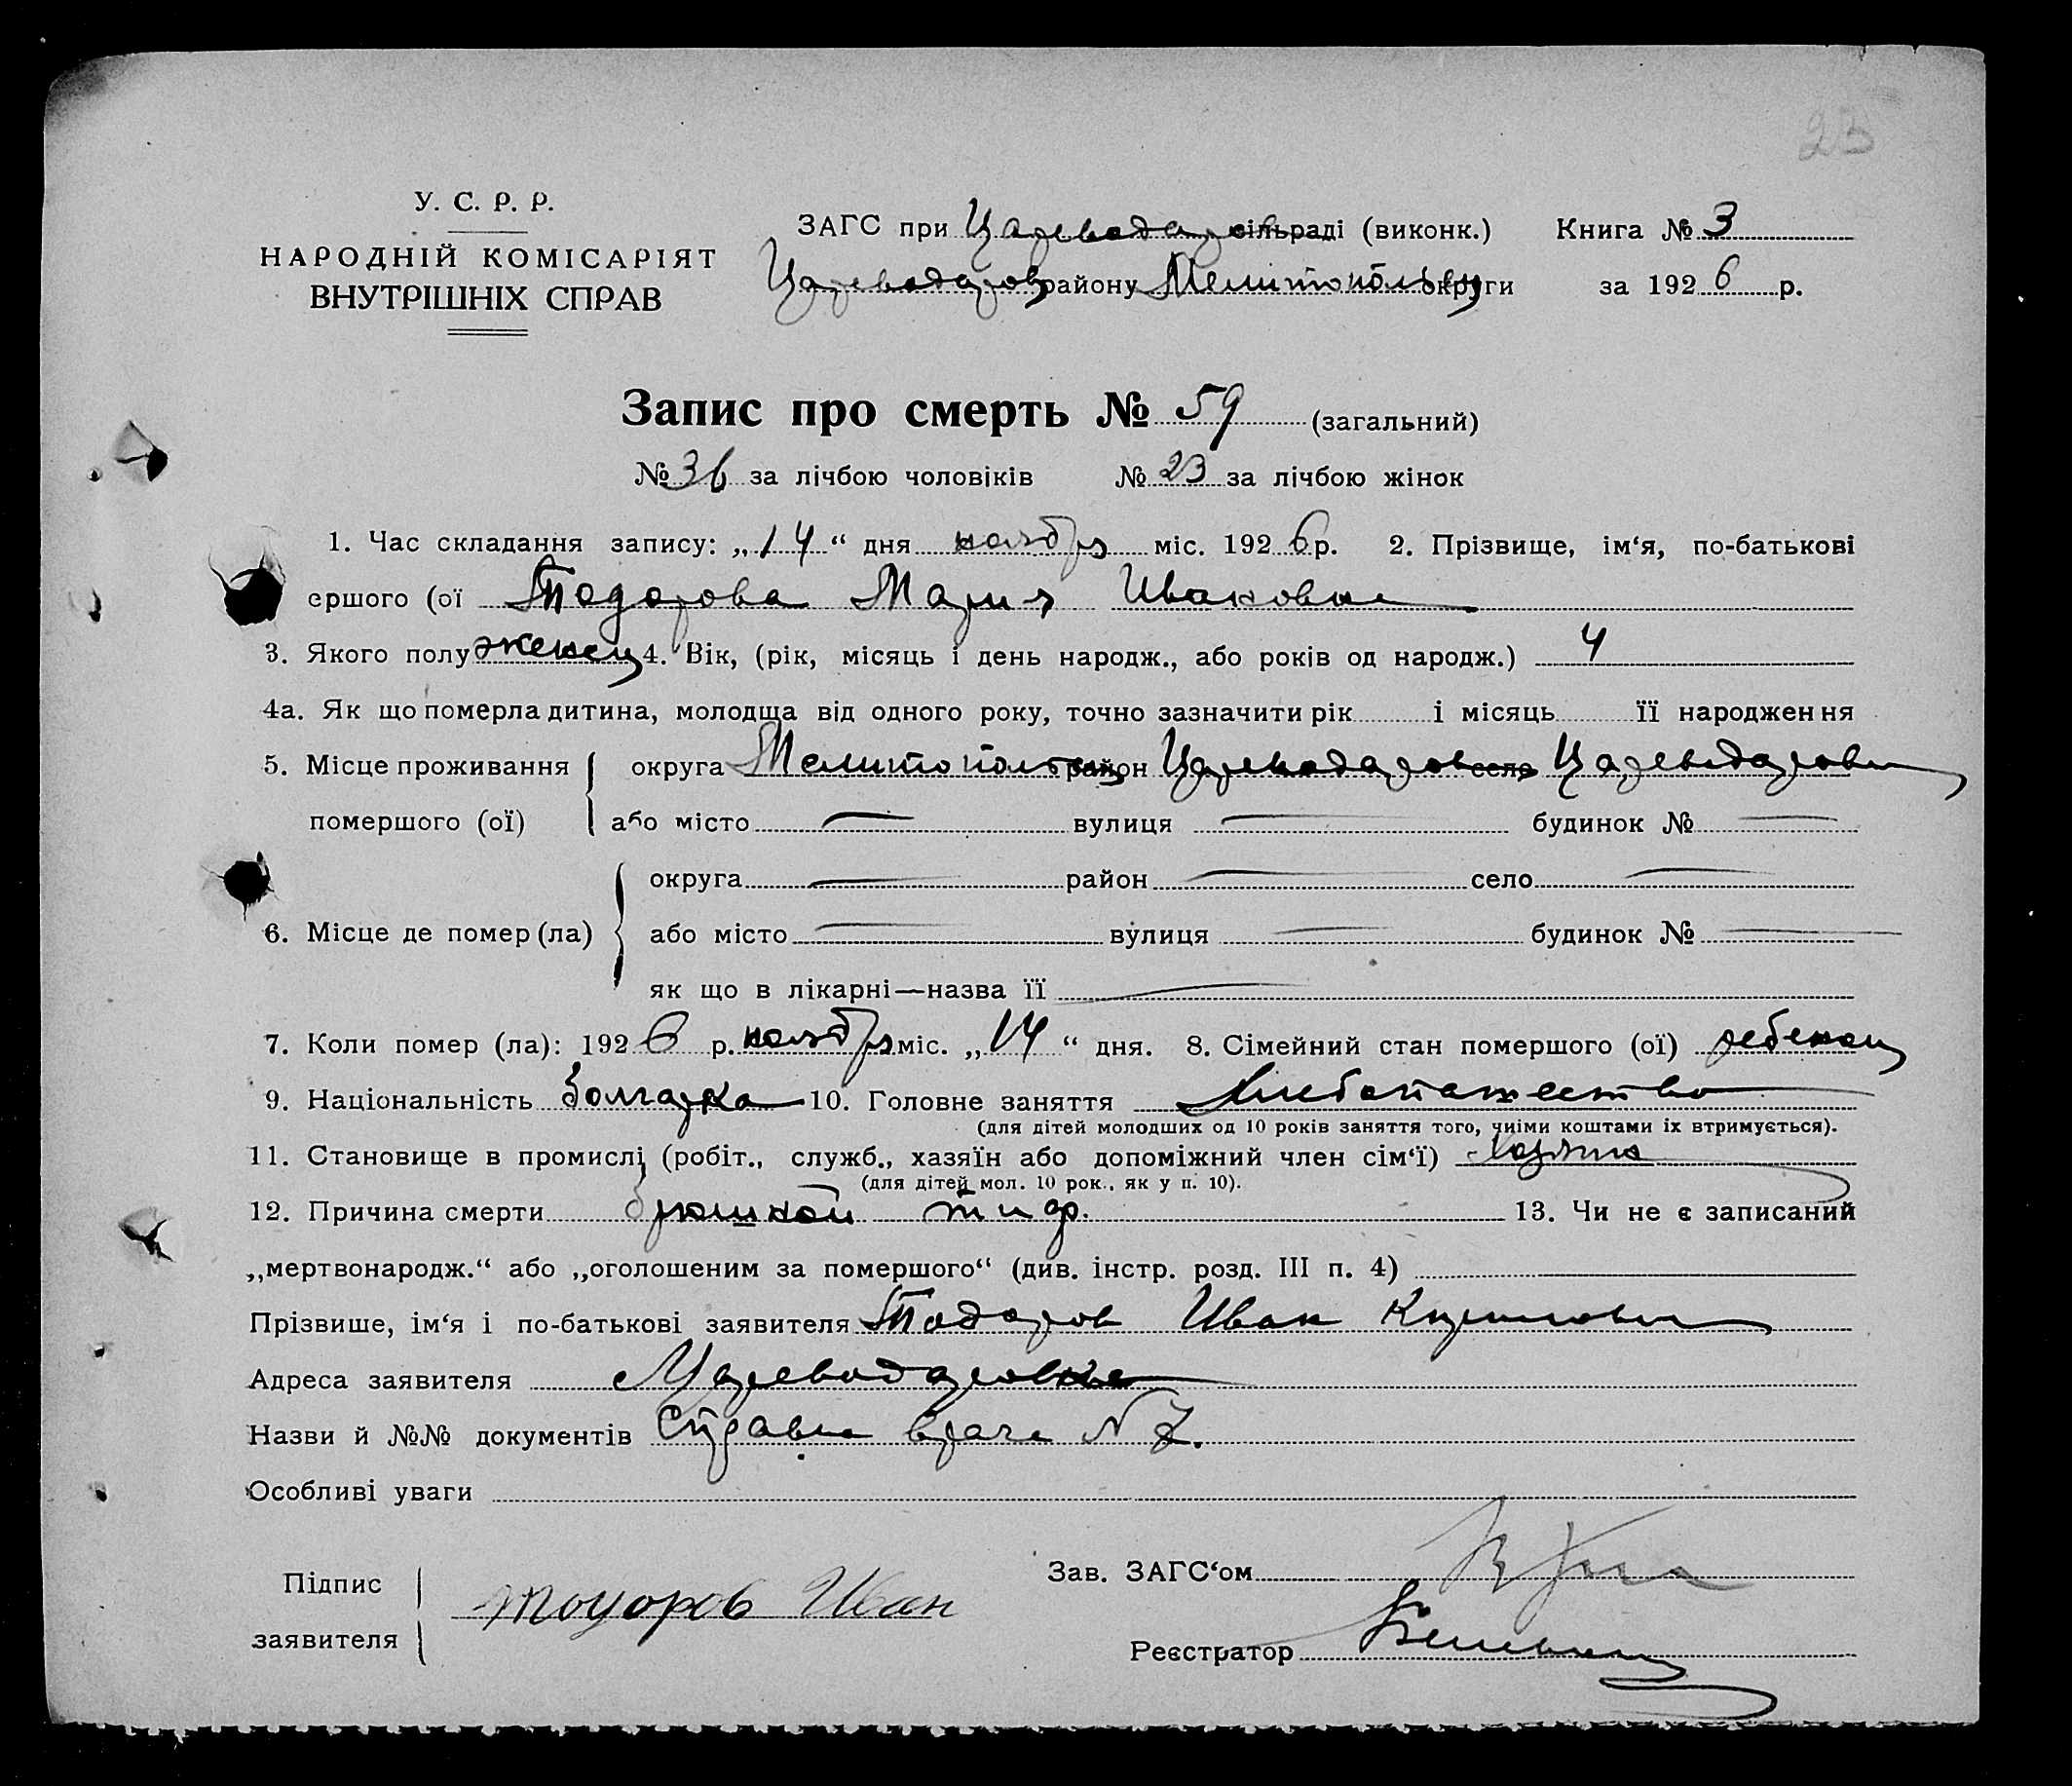 23
У. С. Р. Р.
НАРОДНІЙ КОМІСАРІЯТ
ВНУТРІШНІХ СПРАВ
ЗАГС при Царевода сільраді (виконк.) Книга № 3
Цареводаров району Мелитопольск округи за 1926 р.
Запис про смерть № 59 (загальний)
№ 36 за лічбою чоловіків № 23 за лічбою жінок
1. Час складання запису: „14“ дня ноября міс. 1926 р. 2. Прізвище, ім‘я, по-батькові
ершого (ої Тодорова Мария Ивановна
3. Якого полу женск 4. Вік, (рік, місяць і день народж., або років од народж.) 4
4а. Як що померла дитина, молодща від одного року, точно зазначити рік і місяць її народження
5. Місце проживання округа Мелитопольск район Цареводаров село Цареводаровка
помершого (ої) або місто — вулиця — будинок № —
округа — район — село —
6. Місце де помер (ла) або місто — вулиця — будинок № —
як що в лікарні—назва її —
7. Коли помер (ла): 1926 р. ноября міс. „14“ дня. 8. Сімейний стан помершого (ої) ребенок
9. Національність болгарка 10. Головне заняття хлебопашество
(для дітей молодших од 10 років заняття того, чиїми коштами їх втримується).
11. Становище в промислі (робіт., служб., хазяїн або допоміжний член сім‘ї) хозяин
(для дітей мол. 10 рок., як у п. 10).
12. Причина смерти брюшной тиф. 13. Чи не є записаний
„мертвонародж.“ або „оголошеним за помершого“ (див. інстр. розд. III п. 4)
Прізвише, ім‘я і по-батькові заявителя Тодоров Иван Кириллович
Адреса заявителя Цареводаровка
Назви й №№ документів Справка врача N 7.
Особливі уваги
Підпис заявителя Тодоров Иван
Зав. ЗАГС‘ом
Реєстратор